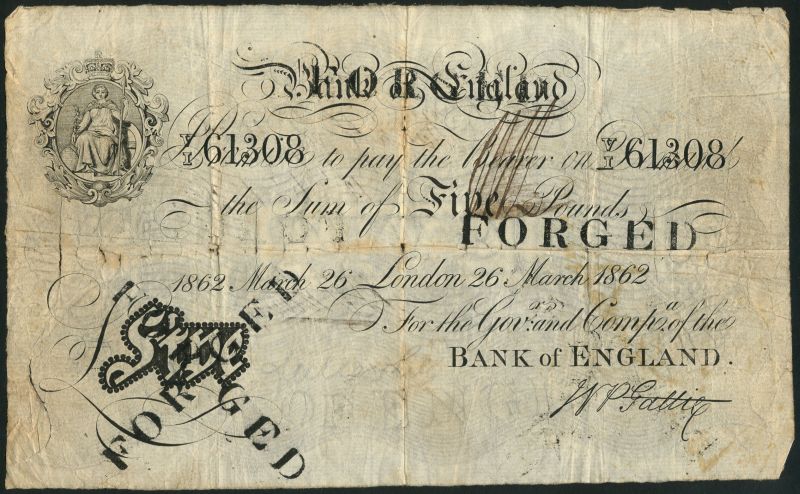 Bank of England
V/I 61308 to pay the Bearer on V/I 61308
the Sum of Five Pounds
FORGED
1862 March 26 London 26 March 1862
For the Govr. and Compa. of the
BANK of ENGLAND.
Five
FORGED
FORGED